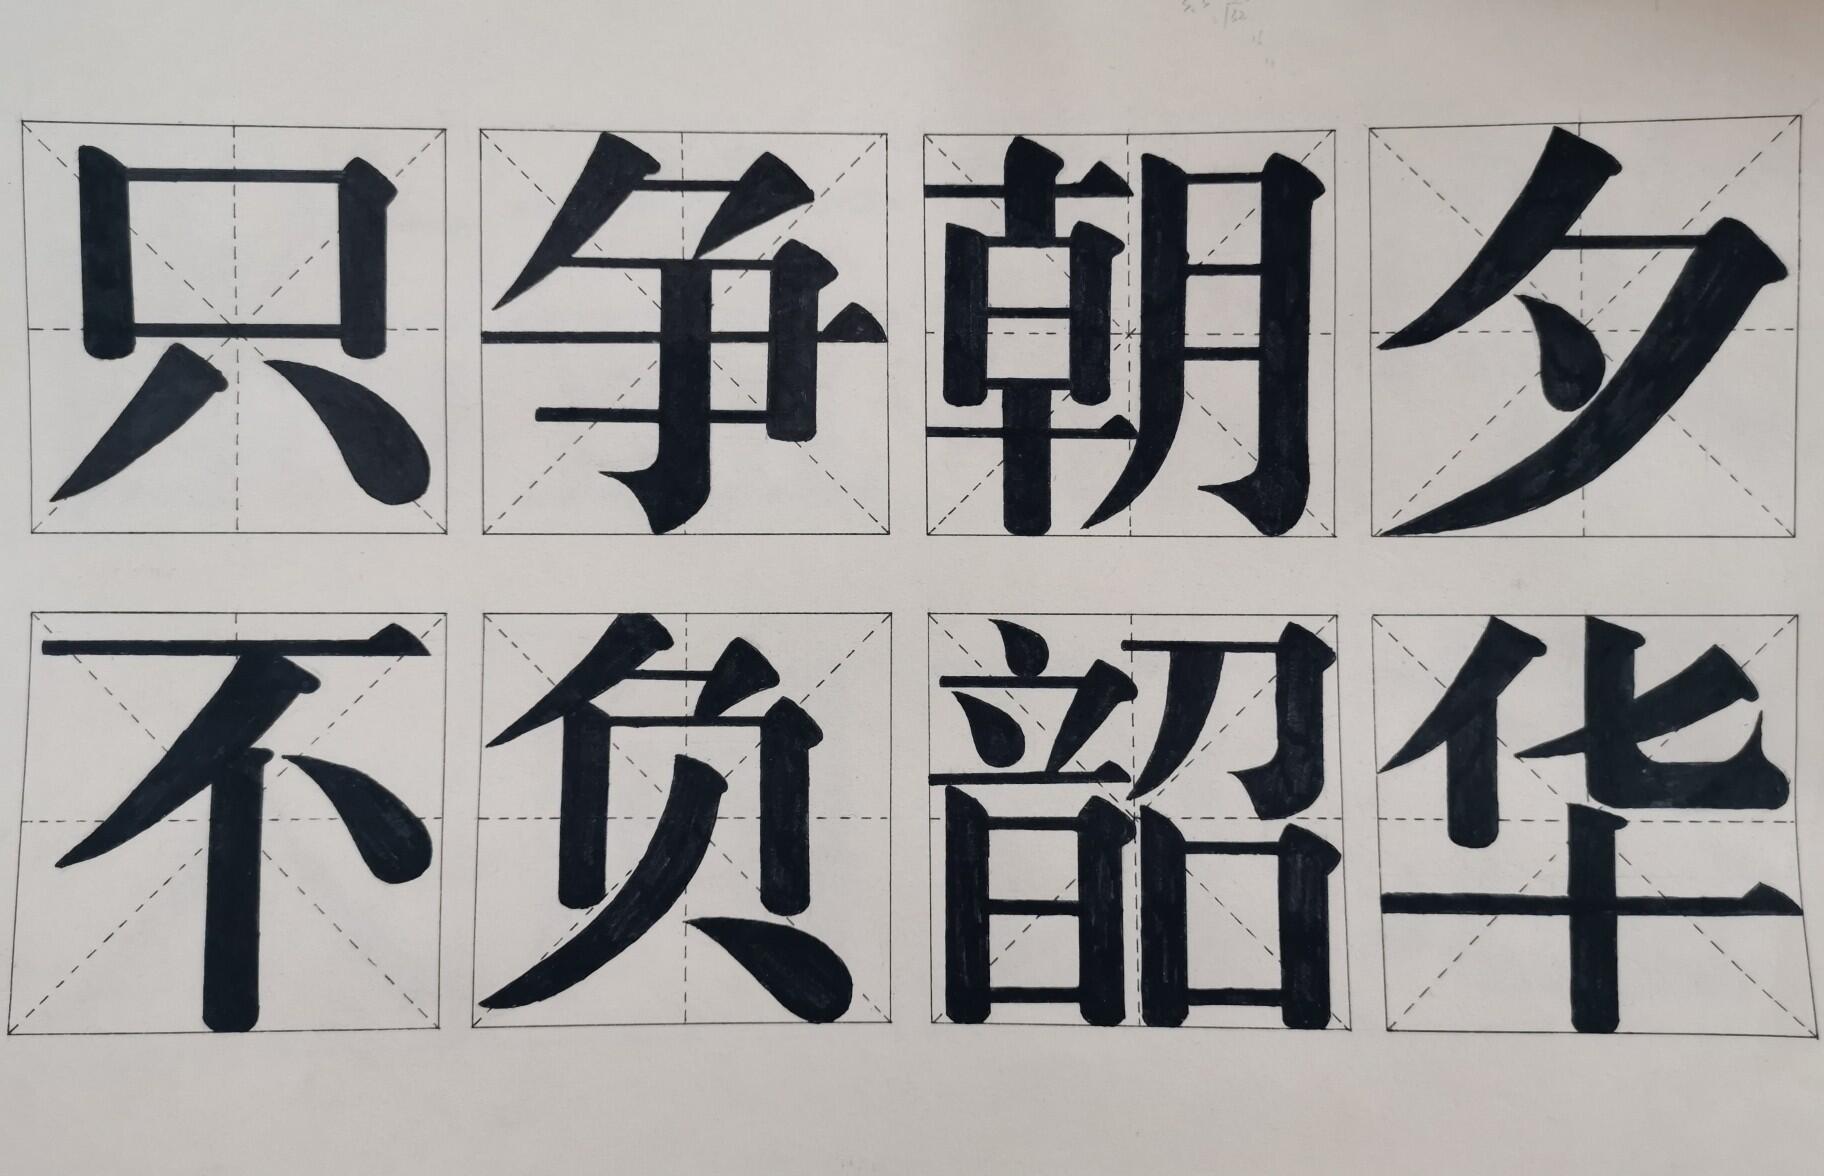 只争朝夕
不负韶华